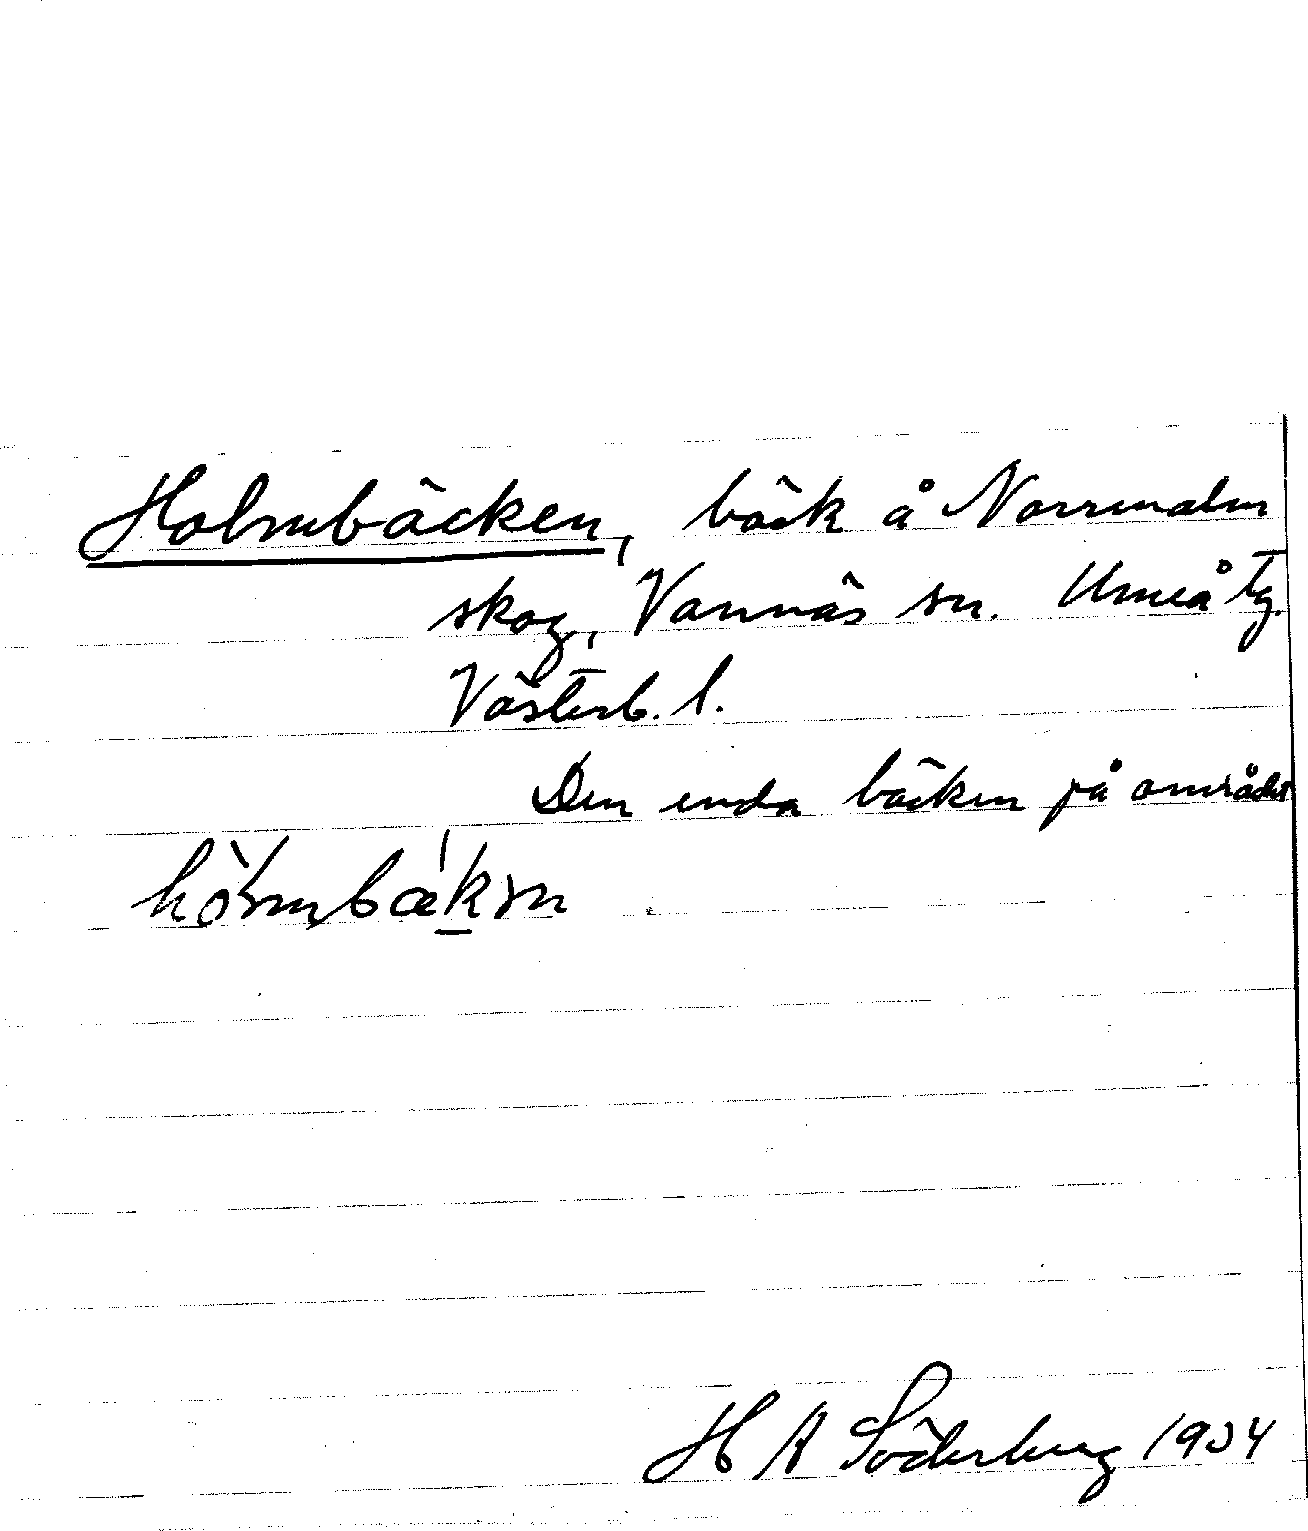 Holmbäcken, bäck å Norrmalm
skog, Vännäs sn. Umeå tg.
Västerb. l.
Den enda bäcken på området
H A Söderberg 1934